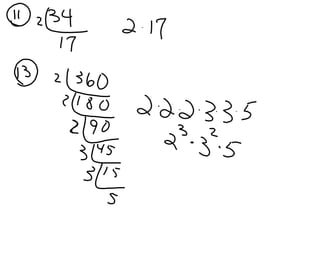 11 2 34 2·17
17
13 2 360
2 180 2·2·2·3·3·5
2 90 2³·3²·5
3 45
3 15
5